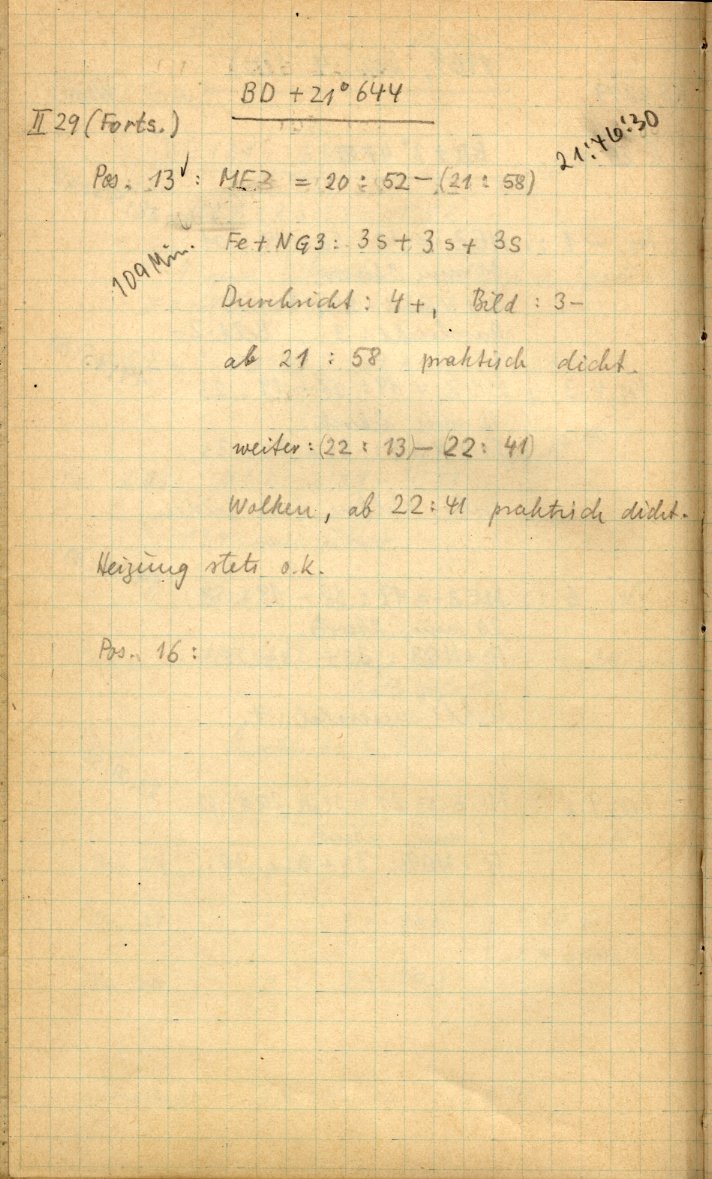 BD +21° 644
II 29 (Forts.)
21:46:30
Pos. 13√: MEZ = 20 : 52 – (21 : 58)
109 Min.
Fe + NG3: 3s + 3s + 3s
Durchsicht : 4+, Bild : 3–
ab 21 : 58 praktisch dicht.
weiter: (22 : 13) – (22 : 41)
Wolken, ab 22:41 praktisch dicht.
Heizung stets o.k.
Pos. 16 :